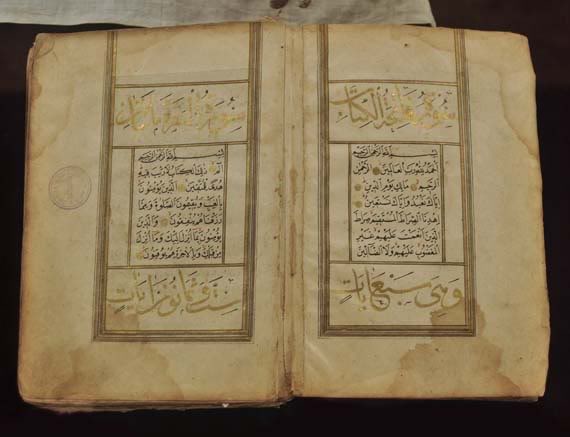 سورة فاتحة الكتاب
بسم الله الرحمن الرحيم
الحمد لله رب العالمين الرحمن
الرحيم مالك يوم الدين
اياك نعبد واياك نستعين
اهدنا الصراط المستقيم صراط
الذين انعمت عليهم غير
المغضوب عليهم ولا الضالين
وهي سبع ايات
سورة البقرة
بسم الله الرحمن الرحيم
الم ذلك الكتاب لا ريب فيه
هدى للمتقين الذين يؤمنون
بالغيب ويقيمون الصلوة ومما
رزقناهم ينفقون والذين
يؤمنون بما انزل اليك وما انزل
من قبلك وبالاخرة هم يوقنون
ست وثمانون ايات